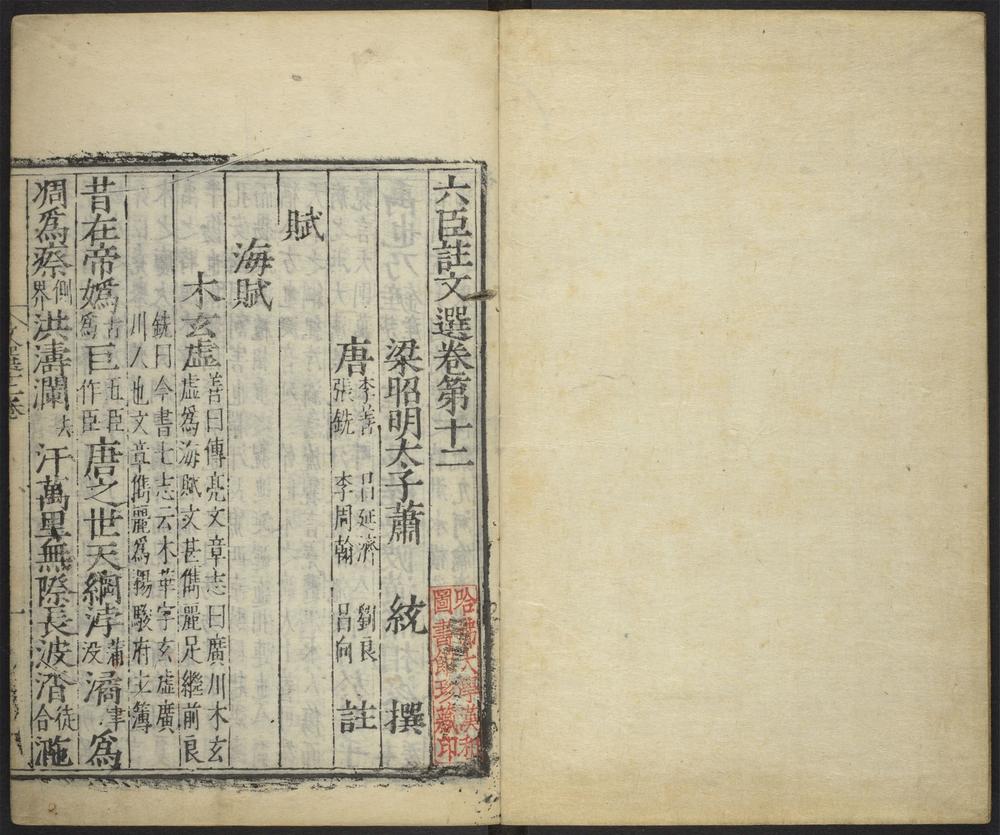 六臣註文選卷第十二
梁昭明太子蕭 統 撰
唐 李善 呂延濟 劉良 張銑 李周翰 呂向 註
賦
海賦
木玄虛 善曰傅亮文章志曰廣川木玄虛爲海賦文甚儁麗足繼前良
銑曰今書七志云木華字玄虛廣川人也文章儁麗爲楊駿府主簿
昔在帝嬀 爲 巨 五臣作臣 唐之世天綱浡 蒲没 潏 聿 爲
凋爲瘵 側界 洪濤瀾 汗萬里無際長波涾 徒合 㴰
哈佛大學漢和圖書館珍藏印